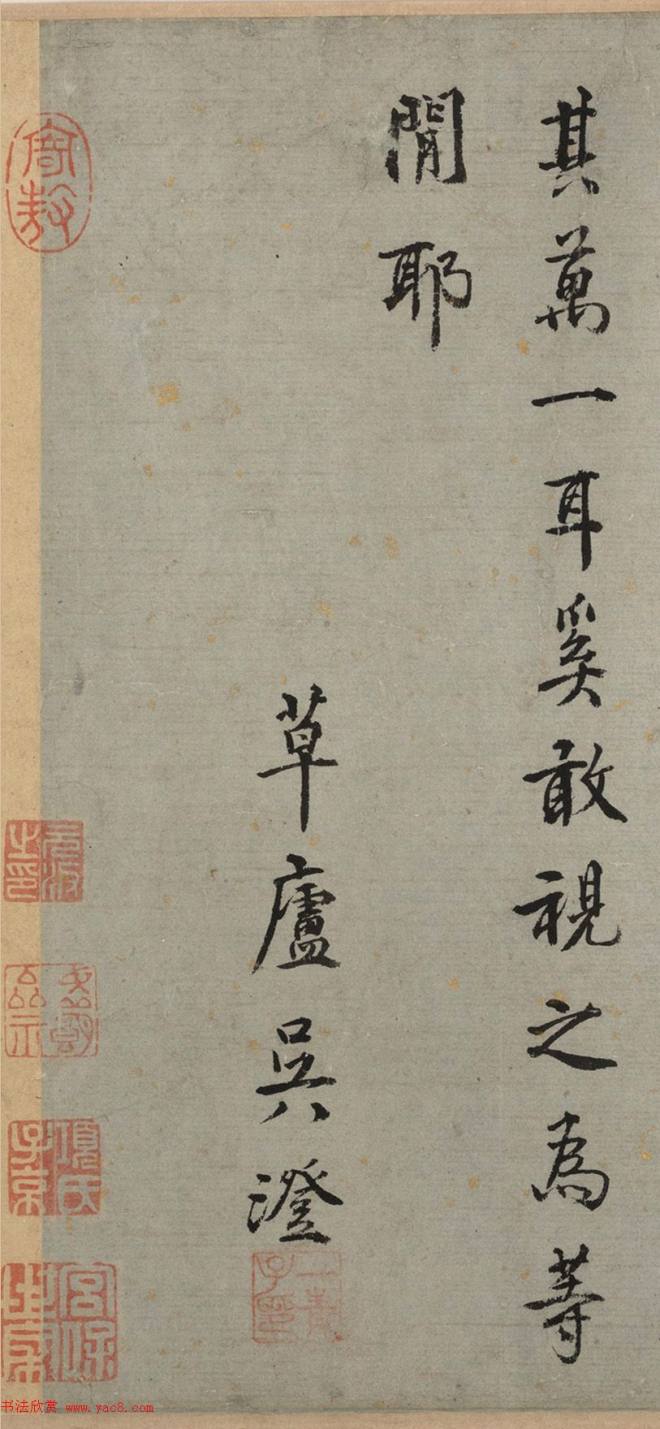 其萬一耳奚敢視之為等
閒耶
草廬吳澄
項氏子京
書法欣赏 www.yac8.com